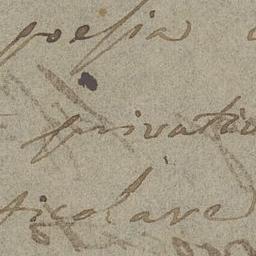 poesia
privativ
ticolare